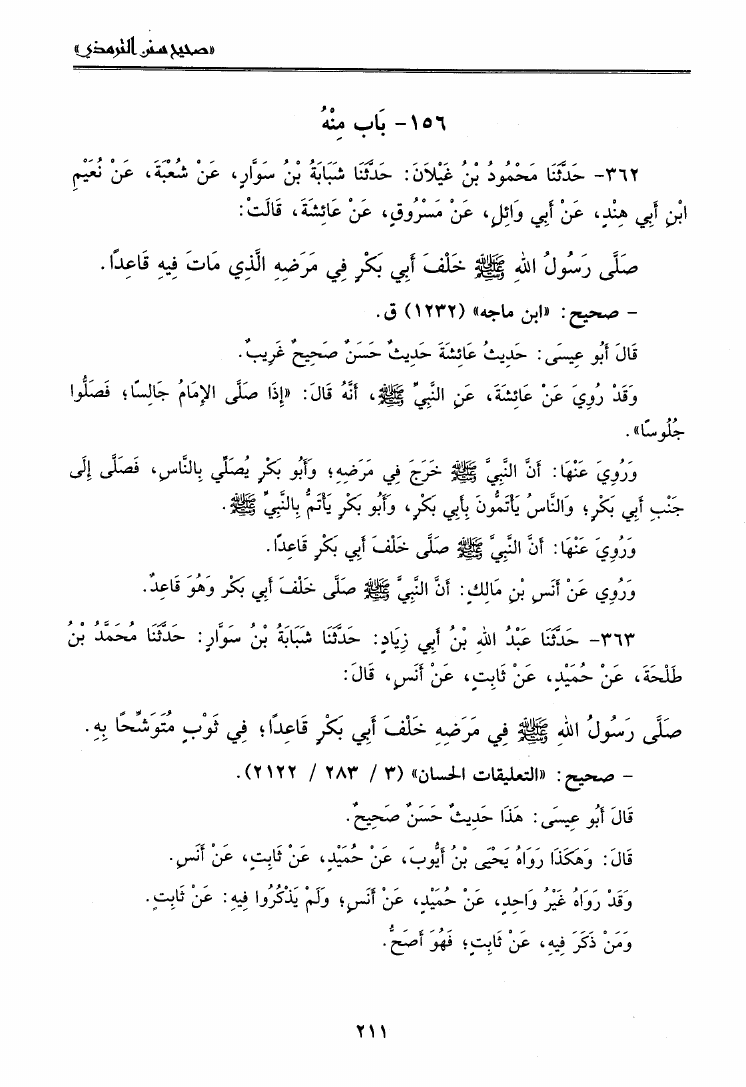 «صحيح سنن الترمذي»
١٥٦- بَاب مِنْهُ
٣٦٢- حَدَّثَنَا مَحْمُودُ بْنُ غَيْلاَنَ: حَدَّثَنَا شَبَابَةُ بْنُ سَوَّارٍ، عَنْ شُعْبَةَ، عَنْ نُعَيْمِ
ابْنِ أَبِي هِنْدٍ، عَنْ أَبِي وَائِلٍ، عَنْ مَسْرُوقٍ، عَنْ عَائِشَةَ، قَالَتْ:
صَلَّى رَسُولُ اللهِ ﷺ خَلْفَ أَبِي بَكْرٍ فِي مَرَضِهِ الَّذِي مَاتَ فِيهِ قَاعِدًا.
– صحيح: «ابن ماجه» (١٢٣٢) ق.
قَالَ أَبُو عِيسَى: حَدِيثُ عَائِشَةَ حَدِيثٌ حَسَنٌ صَحِيحٌ غَرِيبٌ.
وَقَدْ رُوِيَ عَنْ عَائِشَةَ، عَنِ النَّبِيِّ ﷺ، أَنَّهُ قَالَ: «إِذَا صَلَّى الإِمَامُ جَالِسًا؛ فَصَلُّوا
جُلُوسًا».
وَرُوِيَ عَنْهَا: أَنَّ النَّبِيَّ ﷺ خَرَجَ فِي مَرَضِهِ؛ وَأَبُو بَكْرٍ يُصَلِّي بِالنَّاسِ، فَصَلَّى إِلَى
جَنْبِ أَبِي بَكْرٍ؛ وَالنَّاسُ يَأْتَمُّونَ بِأَبِي بَكْرٍ، وَأَبُو بَكْرٍ يَأْتَمُّ بِالنَّبِيِّ ﷺ.
وَرُوِيَ عَنْهَا: أَنَّ النَّبِيَّ ﷺ صَلَّى خَلْفَ أَبِي بَكْرٍ قَاعِدًا.
وَرُوِي عَنْ أَنَسِ بْنِ مَالِكٍ: أَنَّ النَّبِيَّ ﷺ صَلَّى خَلْفَ أَبِي بَكْر وَهُوَ قَاعِدٌ.
٣٦٣- حَدَّثَنَا عَبْدُ اللهِ بْنُ أَبِي زِيَادٍ: حَدَّثَنَا شَبَابَةُ بْنُ سَوَّارٍ: حَدَّثَنَا مُحَمَّدُ بْنُ
طَلْحَةَ، عَنْ حُمَيْدٍ، عَنْ ثَابِتٍ، عَنْ أَنَسٍ، قَالَ:
صَلَّى رَسُولُ اللهِ ﷺ فِي مَرَضِهِ خَلْفَ أَبِي بَكْرٍ قَاعِدًا؛ فِي ثَوْبٍ مُتَوَشِّحًا بِهِ.
– صحيح: «التعليقات الحسان» (٣ / ٢٨٣ / ٢١٢٢).
قَالَ أَبُو عِيسَى: هَذَا حَدِيثٌ حَسَنٌ صَحِيحٌ.
قَالَ: وَهَكَذَا رَوَاهُ يَحْيَى بْنُ أَيُّوبَ، عَنْ حُمَيْدٍ، عَنْ ثَابِتٍ، عَنْ أَنَسٍ.
وَقَدْ رَوَاهُ غَيْرُ وَاحِدٍ، عَنْ حُمَيْدٍ، عَنْ أَنَسٍ؛ وَلَمْ يَذْكُرُوا فِيهِ: عَنْ ثَابِتٍ.
وَمَنْ ذَكَرَ فِيهِ، عَنْ ثَابِتٍ؛ فَهُوَ أَصَحُّ.
٢١١